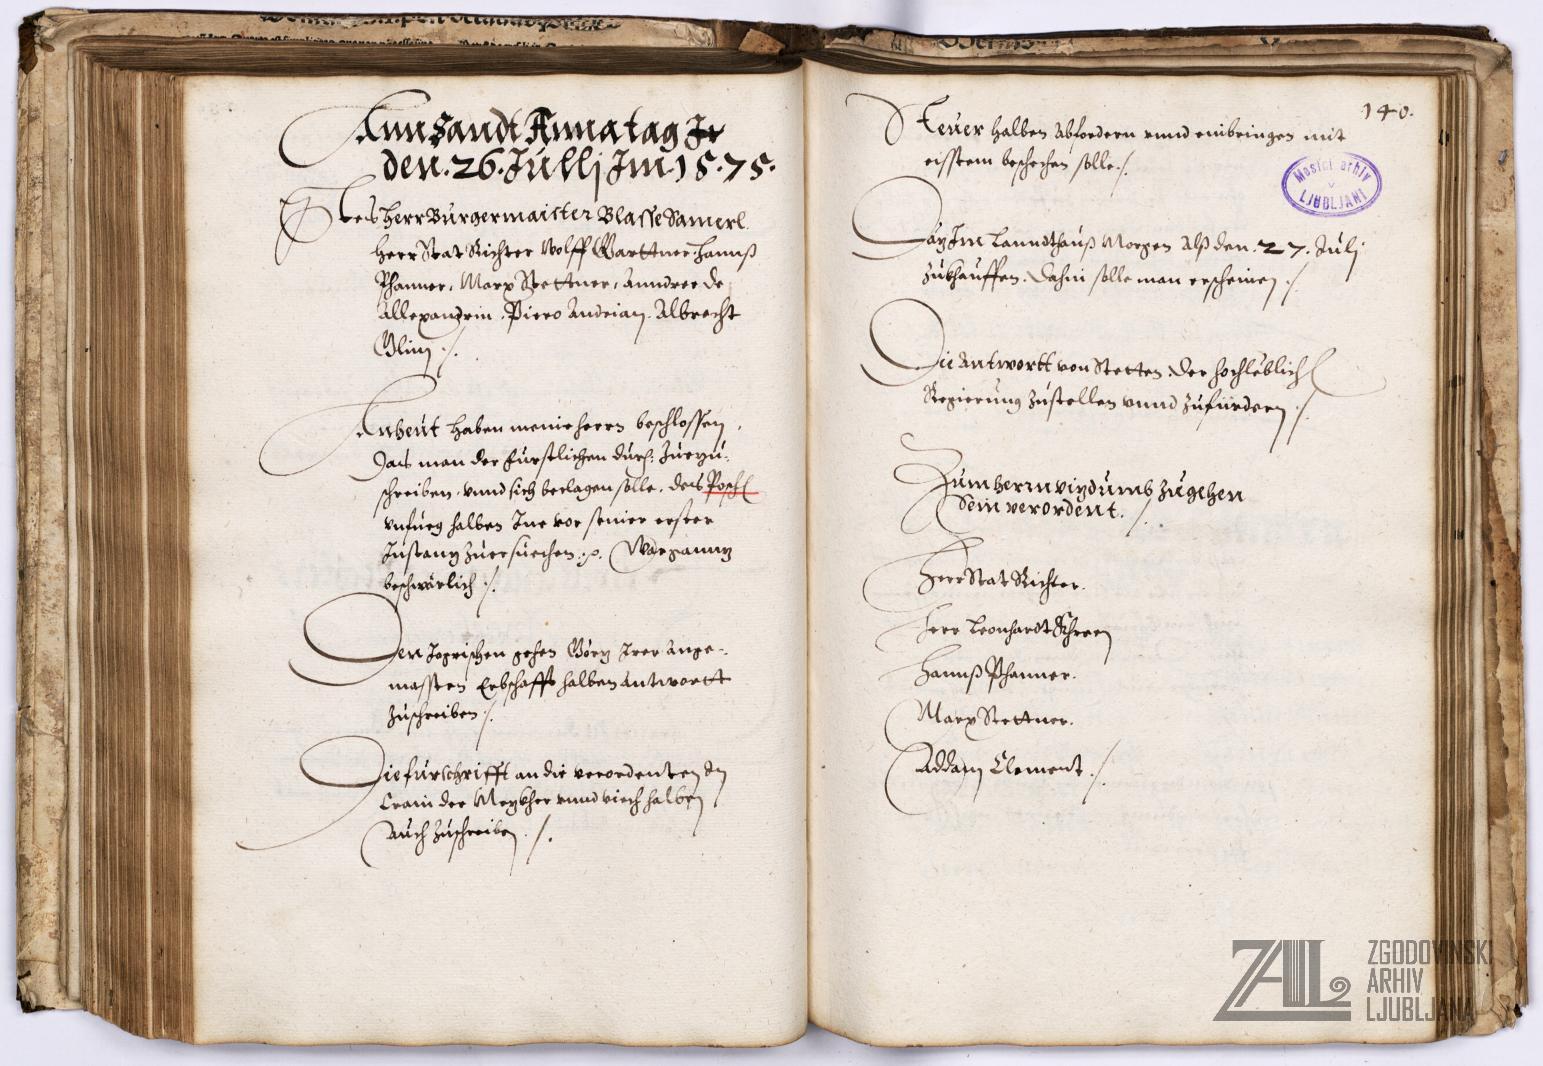 Ann Sandt Anna tag Ir
den .26. Julij Im .1575.
Herr Burgermaister Blasse Samerl.
herr Stat Richter Wolff Warttner, Hannß
Phanner, Marx Stettner, Anndree de
Allexandrin, Piero Andrian, Albrecht
Anheut haben meine herrn beschlossen,
Das man der furstlichen durch: Zuezu-
schreiben, vnnd sich beclagen solle, des Posch
vnfueg halben Ine vor seiner erster
Instanz zuersuechen
beschwärlich ./.
Den Isprischen gehen Irer Ange-
massten Erbschafft halben Antwortt
zuschreiben ./.
Die fürschrifft an die verordenten In
Crain der vnnd viech halben
Auch zuschreiben ./.
140.
Steuer halben Abfordern vnnd einbringen mit
eisstem beschechen solle ./.
Mestni arhiv
v
LJUBLJANI
Im Lanndthauß Morgen Alß den .27. Julj
zukhauffen. Dahin solle man erscheinen ./.
Die Antwortt von Stetten, der hochleblich
Regierung zustellen vnnd zufürdern ./.
Zum herrn vizdumb zugehen
Sein verordent.
Herr Stat Richter.
Herr Leonhardt Khreen
Hannß Phanner.
Marx Stettner.
Addam Clement ./.
ZAL
ZGODOVINSKI
ARHIV
LJUBLJANA